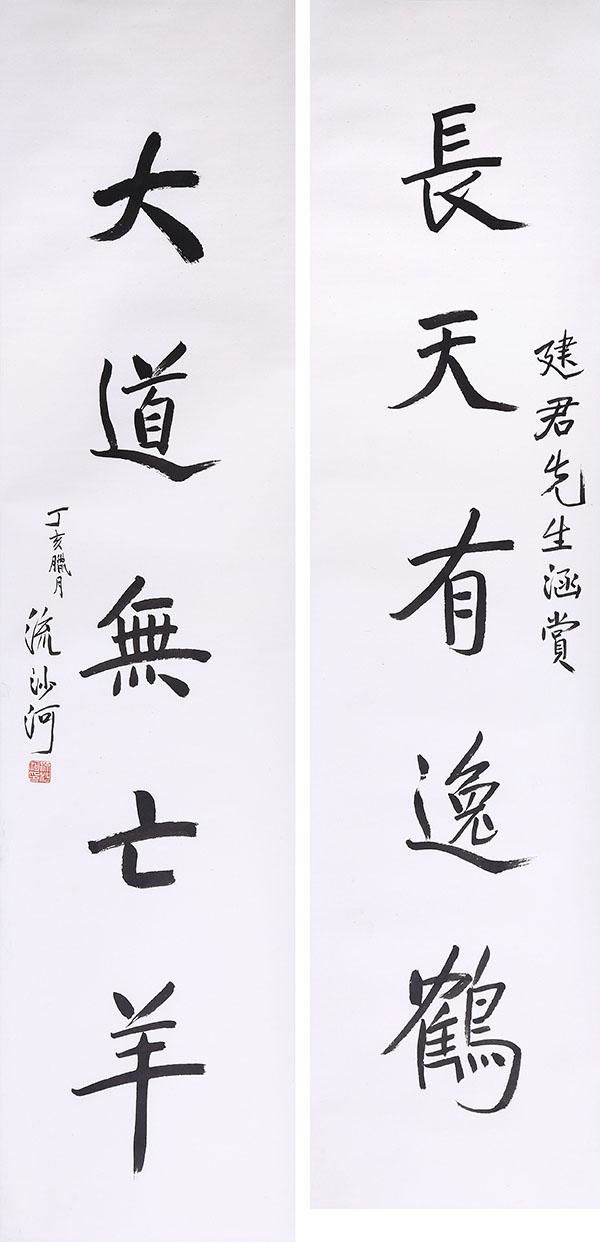 長天有逸鶴
建君先生涵賞
大道無亡羊
丁亥臘月
流沙河